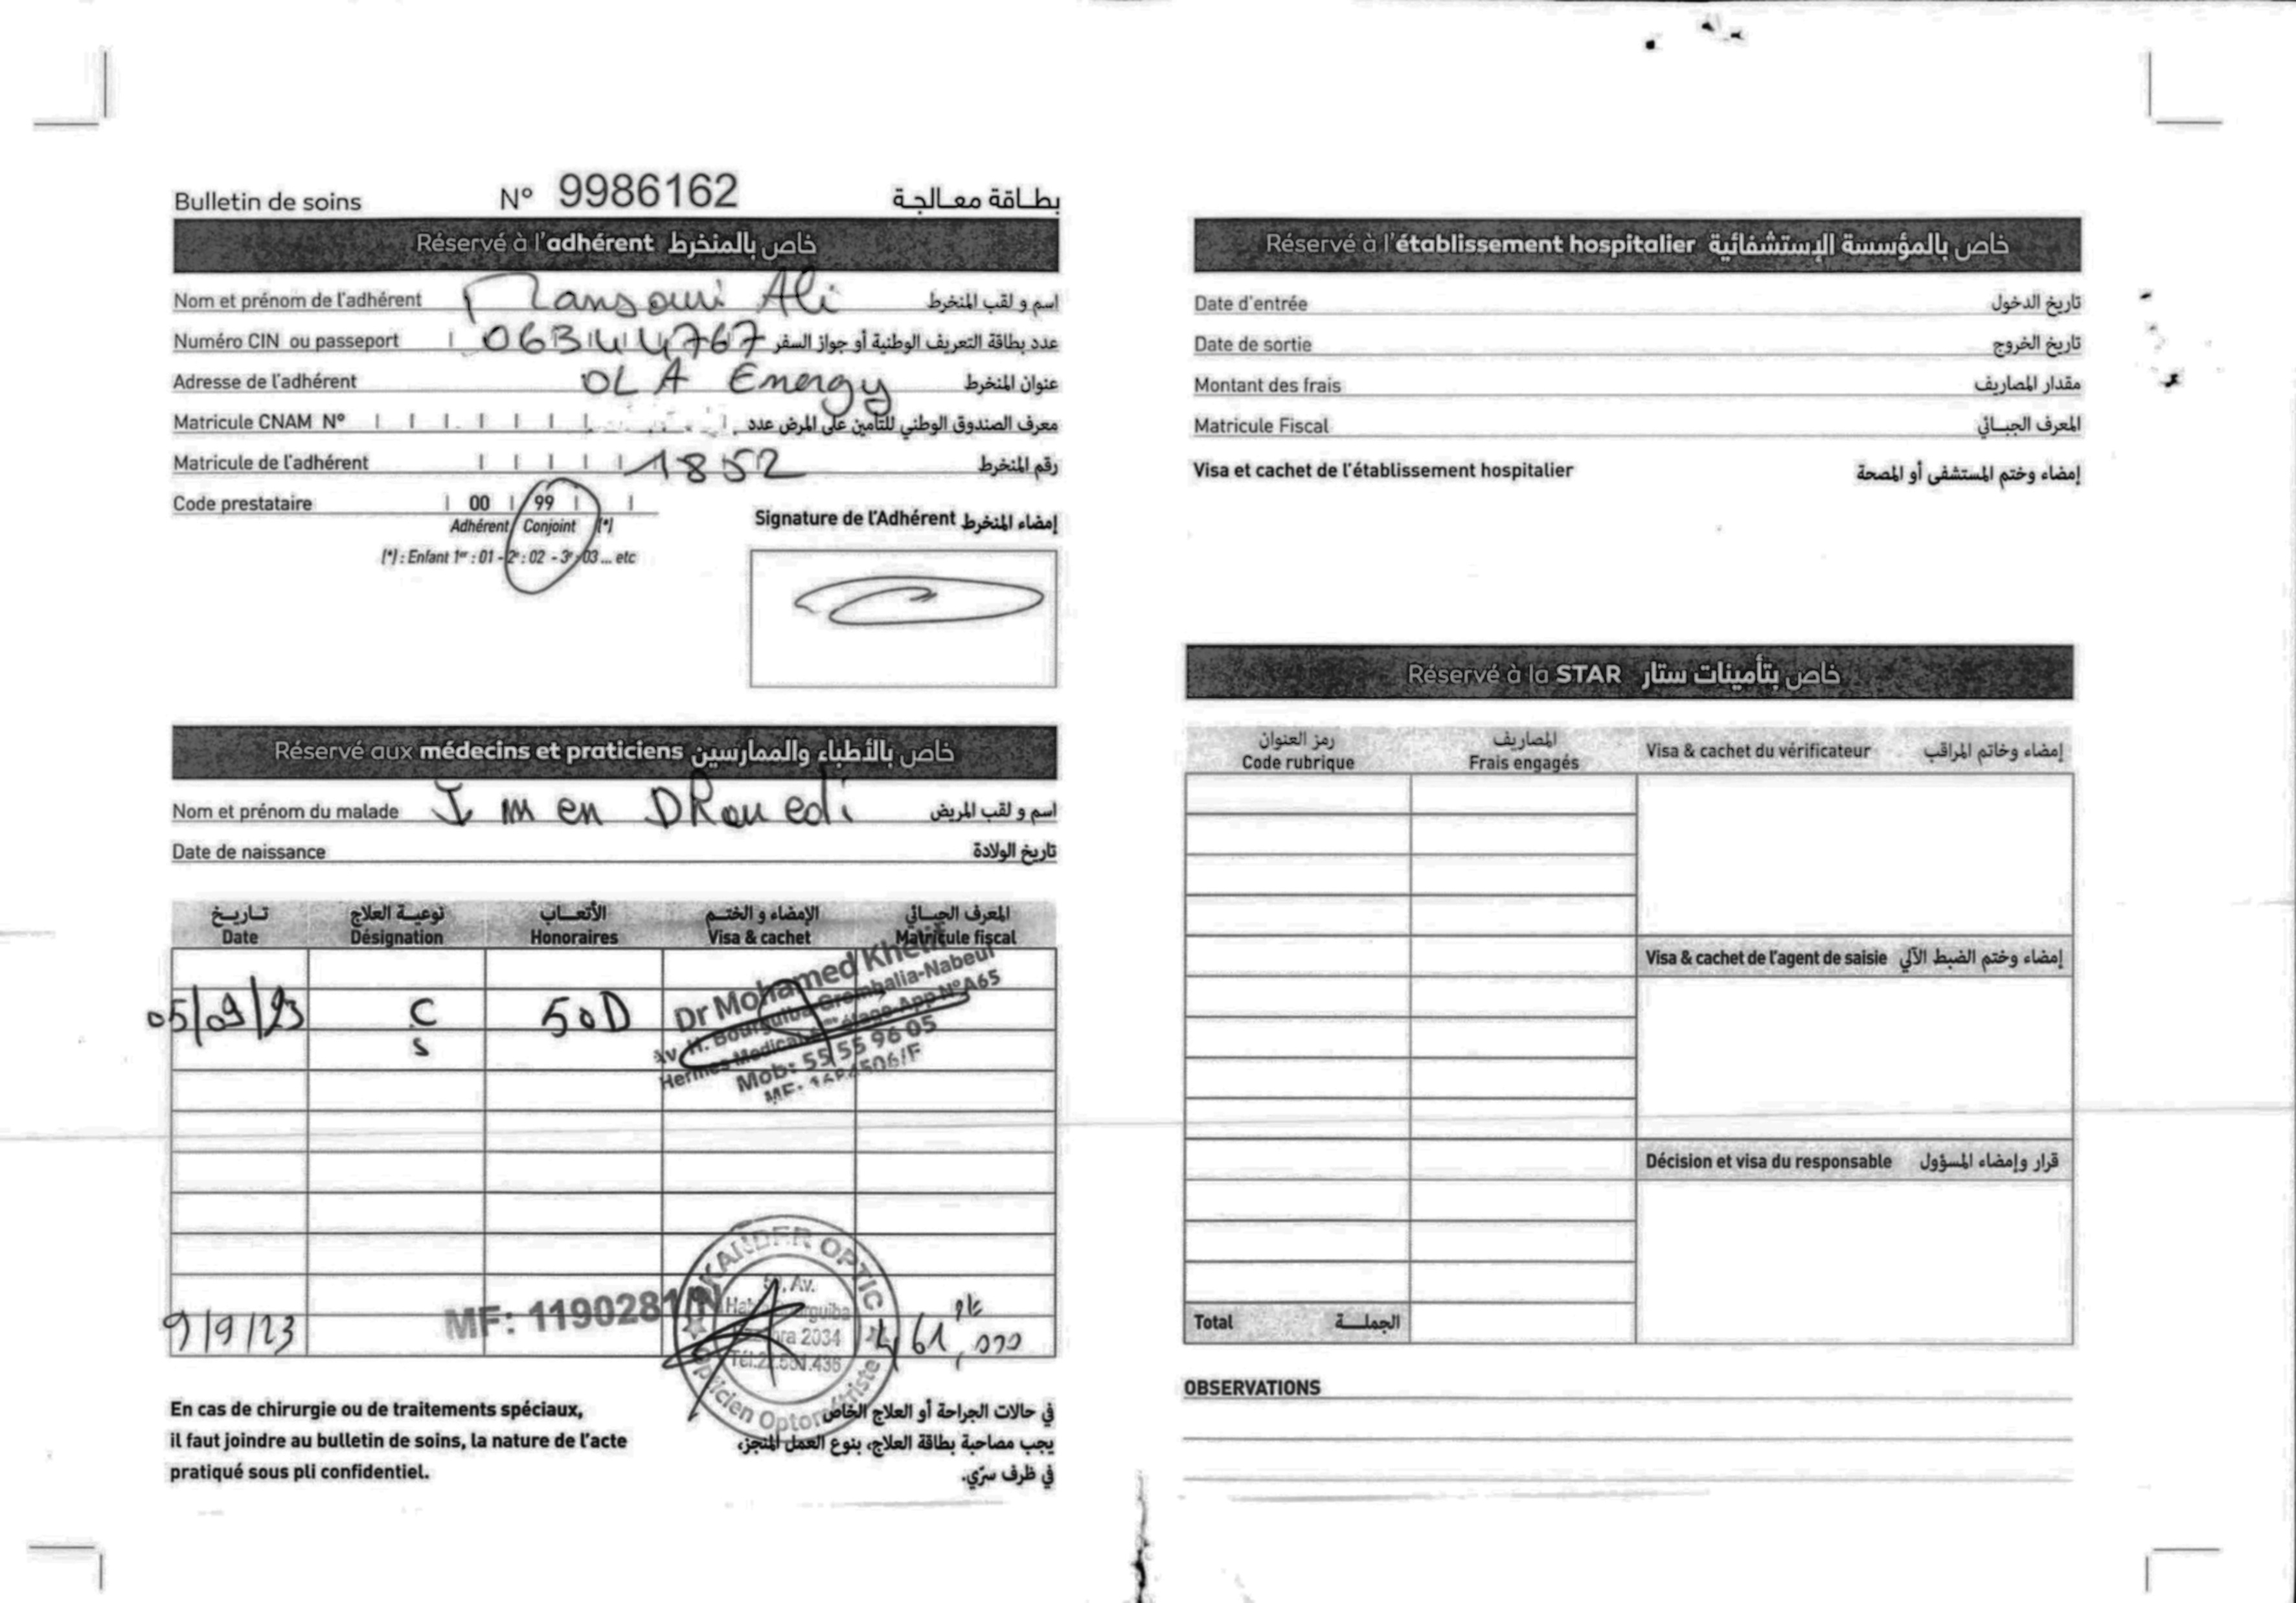 Bulletin de soins N° 9986162 بطاقة معالجة
Réservé à l'adhérent خاص بالمنخرط
Nom et prénom de l'adhérent Mansouri Ali اسم و لقب المنخرط
Numéro CIN ou passeport 06344767 عدد بطاقة التعريف الوطنية أو جواز السفر
Adresse de l'adhérent OLA Energy عنوان المنخرط
Matricule CNAM N° معرف الصندوق الوطني للتأمين على المرض عدد
Matricule de l'adhérent 1852 رقم المنخرط
Code prestataire 00 99
Adhérent Conjoint (*)
(*) : Enfant 1er : 01 - 2e : 02 - 3e : 03 ... etc
Signature de l'Adhérent إمضاء المنخرط
Réservé aux médecins et praticiens خاص بالأطباء والممارسين
Nom et prénom du malade Imen DRouedi اسم و لقب المريض
Date de naissance تاريخ الولادة
تاريخ نوعية العلاج الأتعاب الإمضاء و الختم المعرف الجبائي
Date Désignation Honoraires Visa & cachet Matricule fiscal
05/09/23 C 50D
s
Dr Mohamed
Av. H. Bourguiba Grombalia-Nabeul
Hermes Medical étage App N°A65
Mob: 55 55 96 05
9/9/23 MF: 1190281/N 461,000
OPTIC
Opticien Optométriste
En cas de chirurgie ou de traitements spéciaux,
il faut joindre au bulletin de soins, la nature de l'acte
pratiqué sous pli confidentiel.
في حالات الجراحة أو العلاج الخاص
يجب مصاحبة بطاقة العلاج، بنوع العمل المنجز،
في ظرف سرّي.
Réservé à l'établissement hospitalier خاص بالمؤسسة الإستشفائية
Date d'entrée تاريخ الدخول
Date de sortie تاريخ الخروج
Montant des frais مقدار المصاريف
Matricule Fiscal المعرف الجبائي
Visa et cachet de l'établissement hospitalier إمضاء وختم المستشفى أو المصحة
Réservé à la STAR خاص بتأمينات ستار
رمز العنوان المصاريف
Code rubrique Frais engagés
Visa & cachet du vérificateur إمضاء وخاتم المراقب
Visa & cachet de l'agent de saisie إمضاء وختم الضبط الآلي
Décision et visa du responsable قرار وإمضاء المسؤول
Total الجملة
OBSERVATIONS